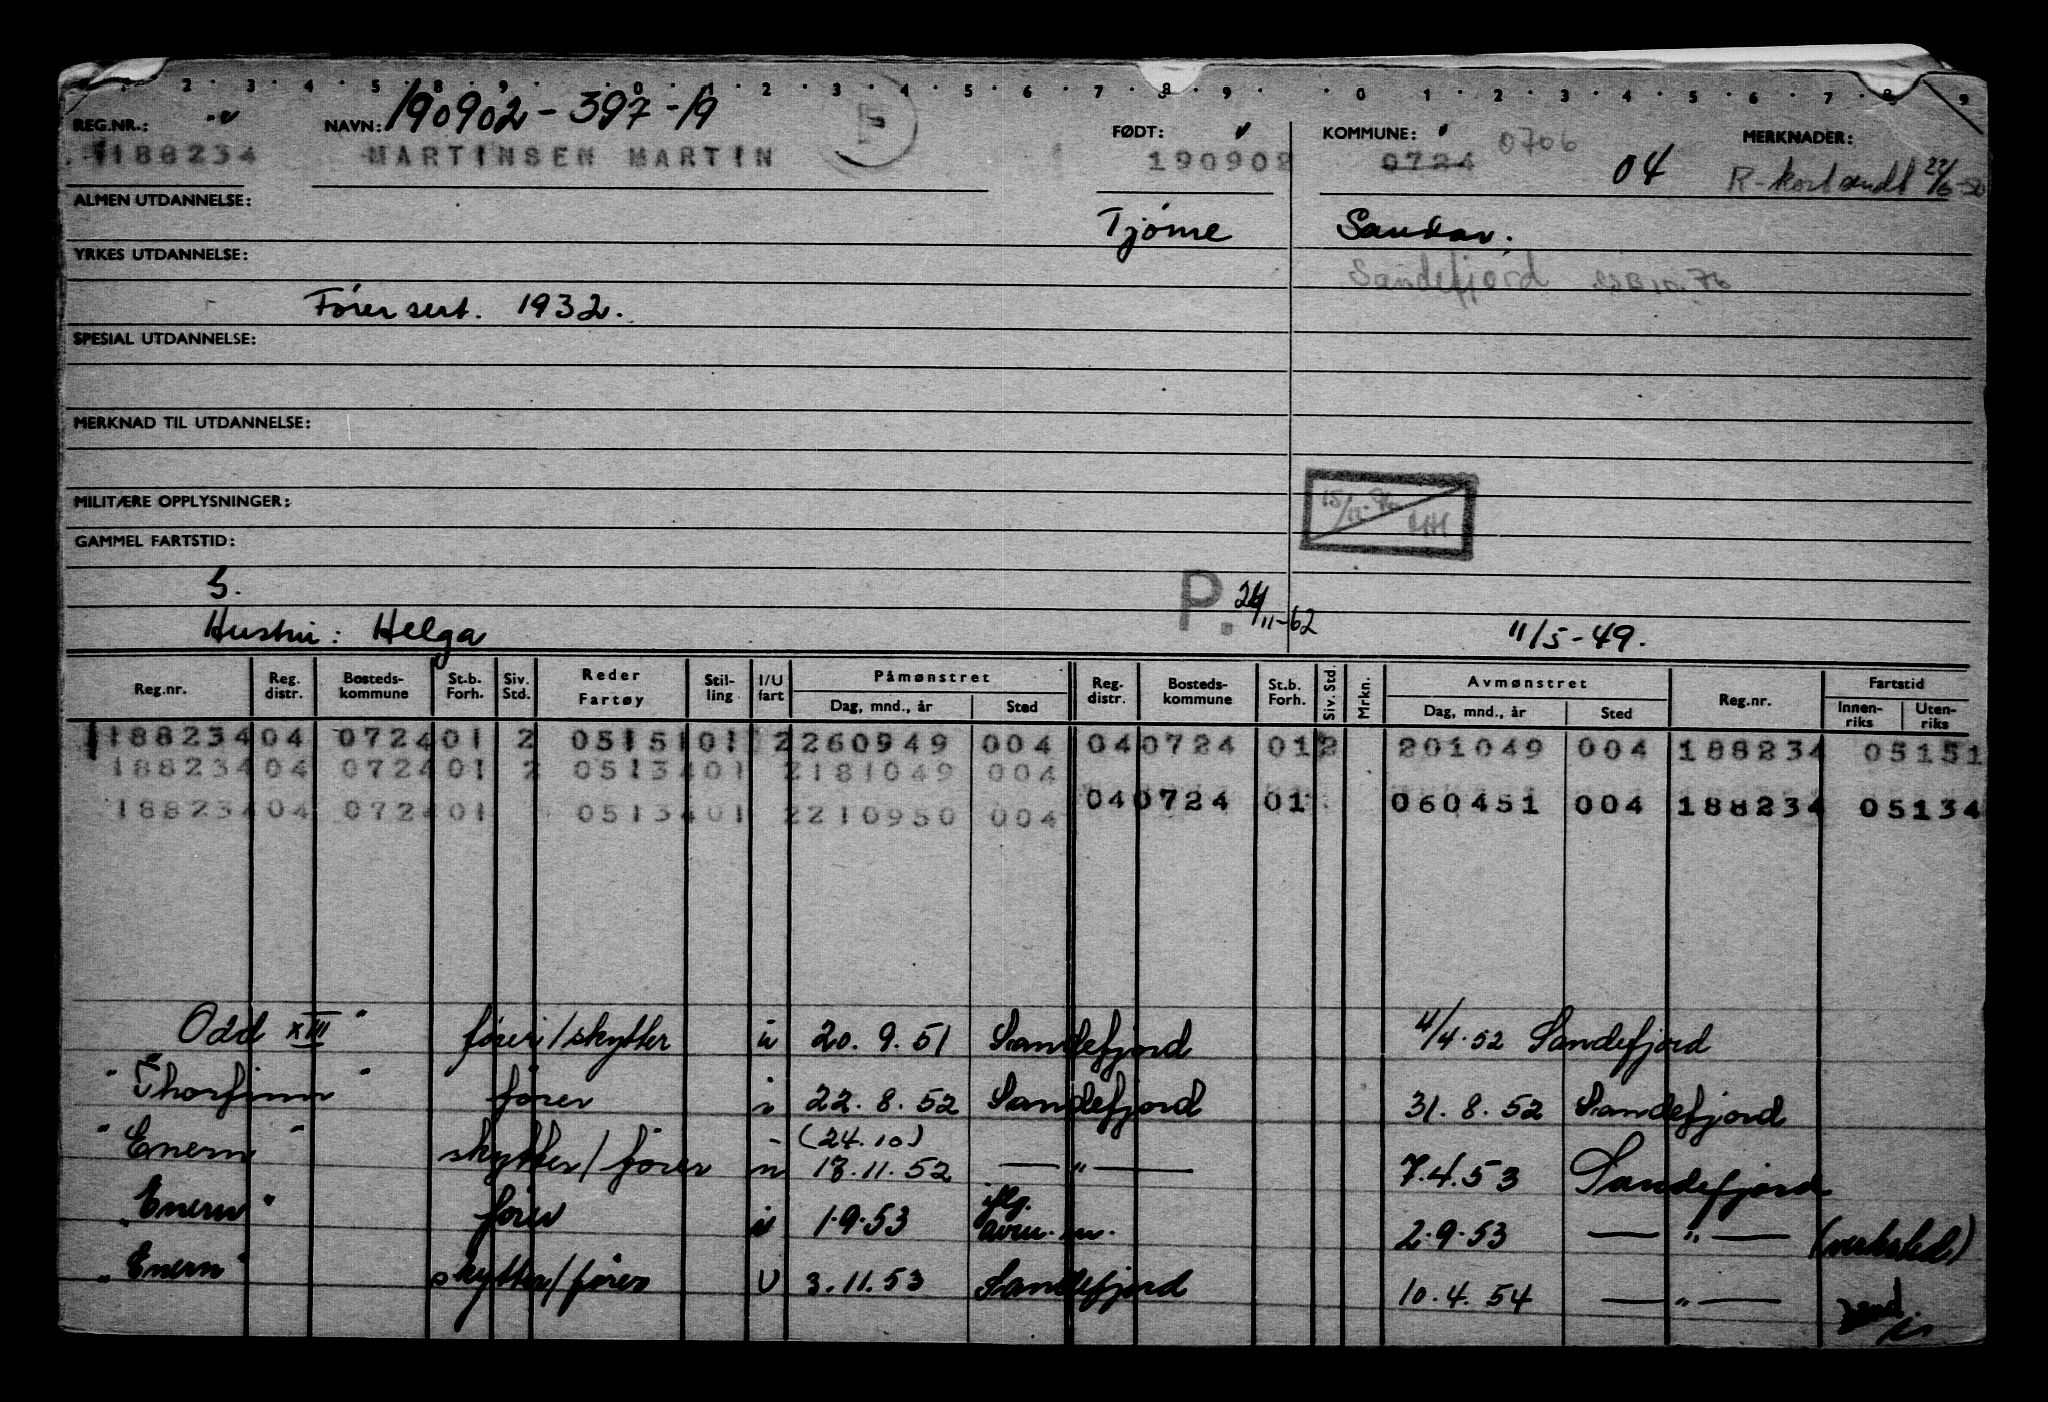 2 3 4 5 8 9 0 1 2 3 4 5 6 7 8 9 0 1 2 3 4 5 6 7 8 9
REG.NR.: NAVN: 190902-397-19 FØDT: KOMMUNE: 0706 MERKNADER:
188234 MARTINSEN MARTIN 190902 0724 04 R-kort sendt
ALMEN UTDANNELSE: Tjöme Sandar.
YRKES UTDANNELSE: Sandefjord
Förersert. 1932.
SPESIAL UTDANNELSE:
MERKNAD TIL UTDANNELSE:
MILITÆRE OPPLYSNINGER:
GAMMEL FARTSTID:
S. P.
Hustru: Helga 11/5-49.
Reg.nr. Reg. distr. Bosteds-kommune St.b. Forh. Siv. Std. Reder Fartøy Stil-ling I/U fart Påmønstret Dag, mnd., år Sted Reg. distr. Bosteds-kommune St.b. Forh. Siv. Std. Mrkn. Avmønstret Dag, mnd., år Sted Reg.nr. Fartstid Innen-riks Uten-riks
188234 04 0724 01 2 05151 01 2 260949 004 04 0724 01 2 201049 004 188234 05151
188234 04 0724 01 2 05134 01 2 181049 004
04 0724 01 060451 004 188234 05134
188234 04 0724 01 05134 01 2 210950 004
Odd XIII" fører/skytter u 20.9.51 Sandefjord 4/4.52 Sandefjord
"Thorfinn" fører i 22.8.52 Sandefjord 31.8.52 Sandefjord
(24.10)
"Enern" skytter/fører u 18.11.52 — " — 7.4.53 Sandefjord
"Enern" fører 1.9.53 iflg. 2.9.53 — " — (verksted)
"Enern" skytter/fører U 3.11.53 Sandefjord 10.4.54 — " —